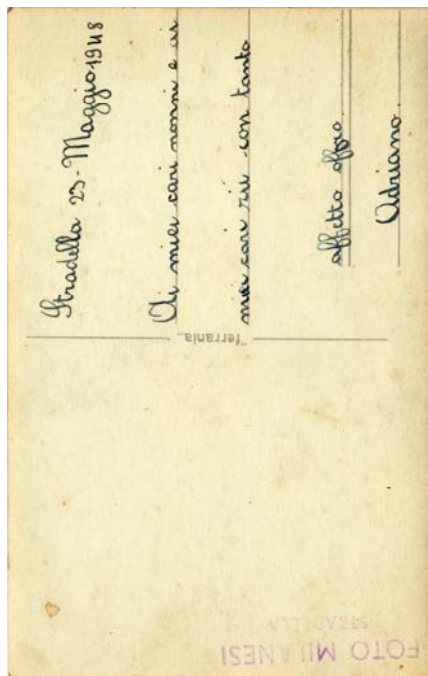 Stradella 23-Maggio 1948
Ai miei cari nonni e ai
miei cari zii con tanto
affetto offro
Adriano.
"ferrania"
FOTO MILANESI
STRADELLA